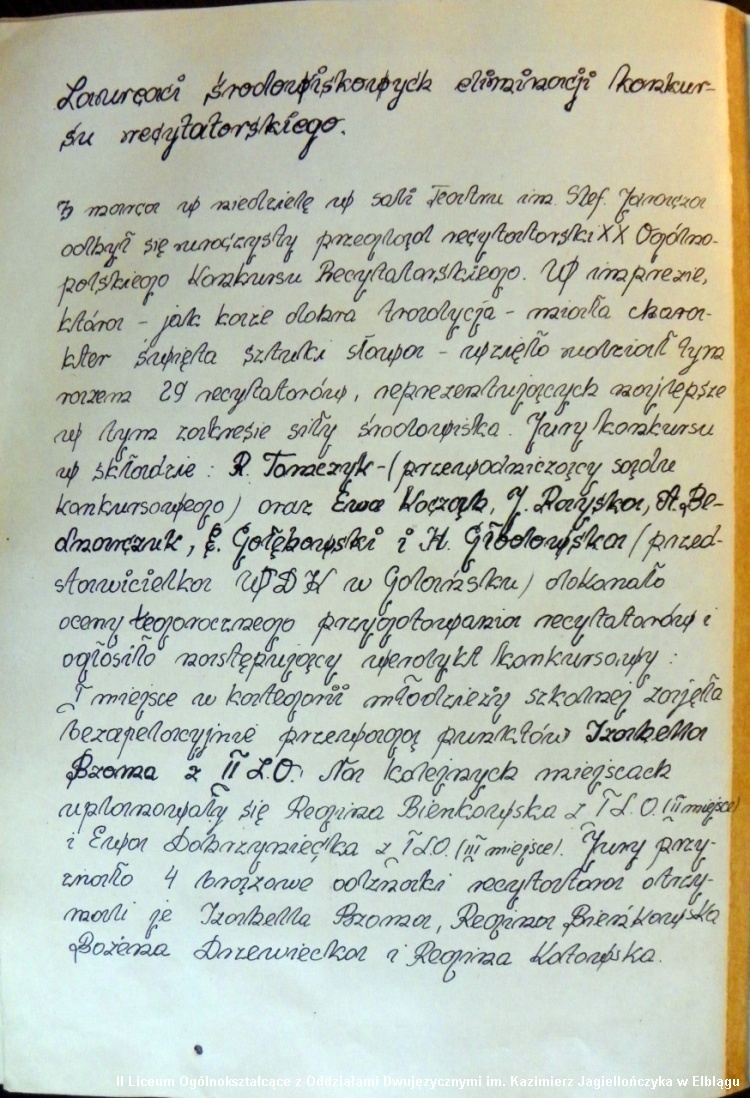 Laureaci środowiskowych eliminacji konkur-
su recytatorskiego.
3 marca w niedzielę w sali Teatru im. Stef. Jaracza
odbył się uroczysty przegląd recytatorski XX Ogólno-
polskiego Konkursu Recytatorskiego. W imprezie,
która - jak każe dobra tradycja - miała charak-
kter święta sztuki słowa - wzięło udział tym
razem 29 recytatorów, reprezentujących najlepsze
w tym zakresie siły środowiska. Jury konkursu
w składzie: R. Tomczyk - (przewodniczący sądu
konkursowego) oraz Ewa J. A. Be-
dnarczuk, E. Gołębowski i H. (przed-
stawicielka WDK w Gdańsku) dokonało
oceny tegorocznego przygotowania recytatorów i
ogłosiło następujący werdykt konkursowy:
I miejsce w kategorii młodzieży szkolnej zajęła
bezapelacyjnie przewagą punktów Izabella
Bzoma z II L.O. Na kolejnych miejscach
uplasowały się Regina Bieńkowska z I L.O. (II miejsce)
i Ewa Dobrzyniecka z I L.O. (III miejsce). Jury przy-
znało 4 brązowe odznaki recytatora otrzy-
mali je Izabella Bzoma, Regina Bieńkowska
Bożena Drzewiecka i Regina Kotowska.
II Liceum Ogólnokształcące z Oddziałami Dwujęzycznymi im. Kazimierz Jagiellończyka w Elblągu